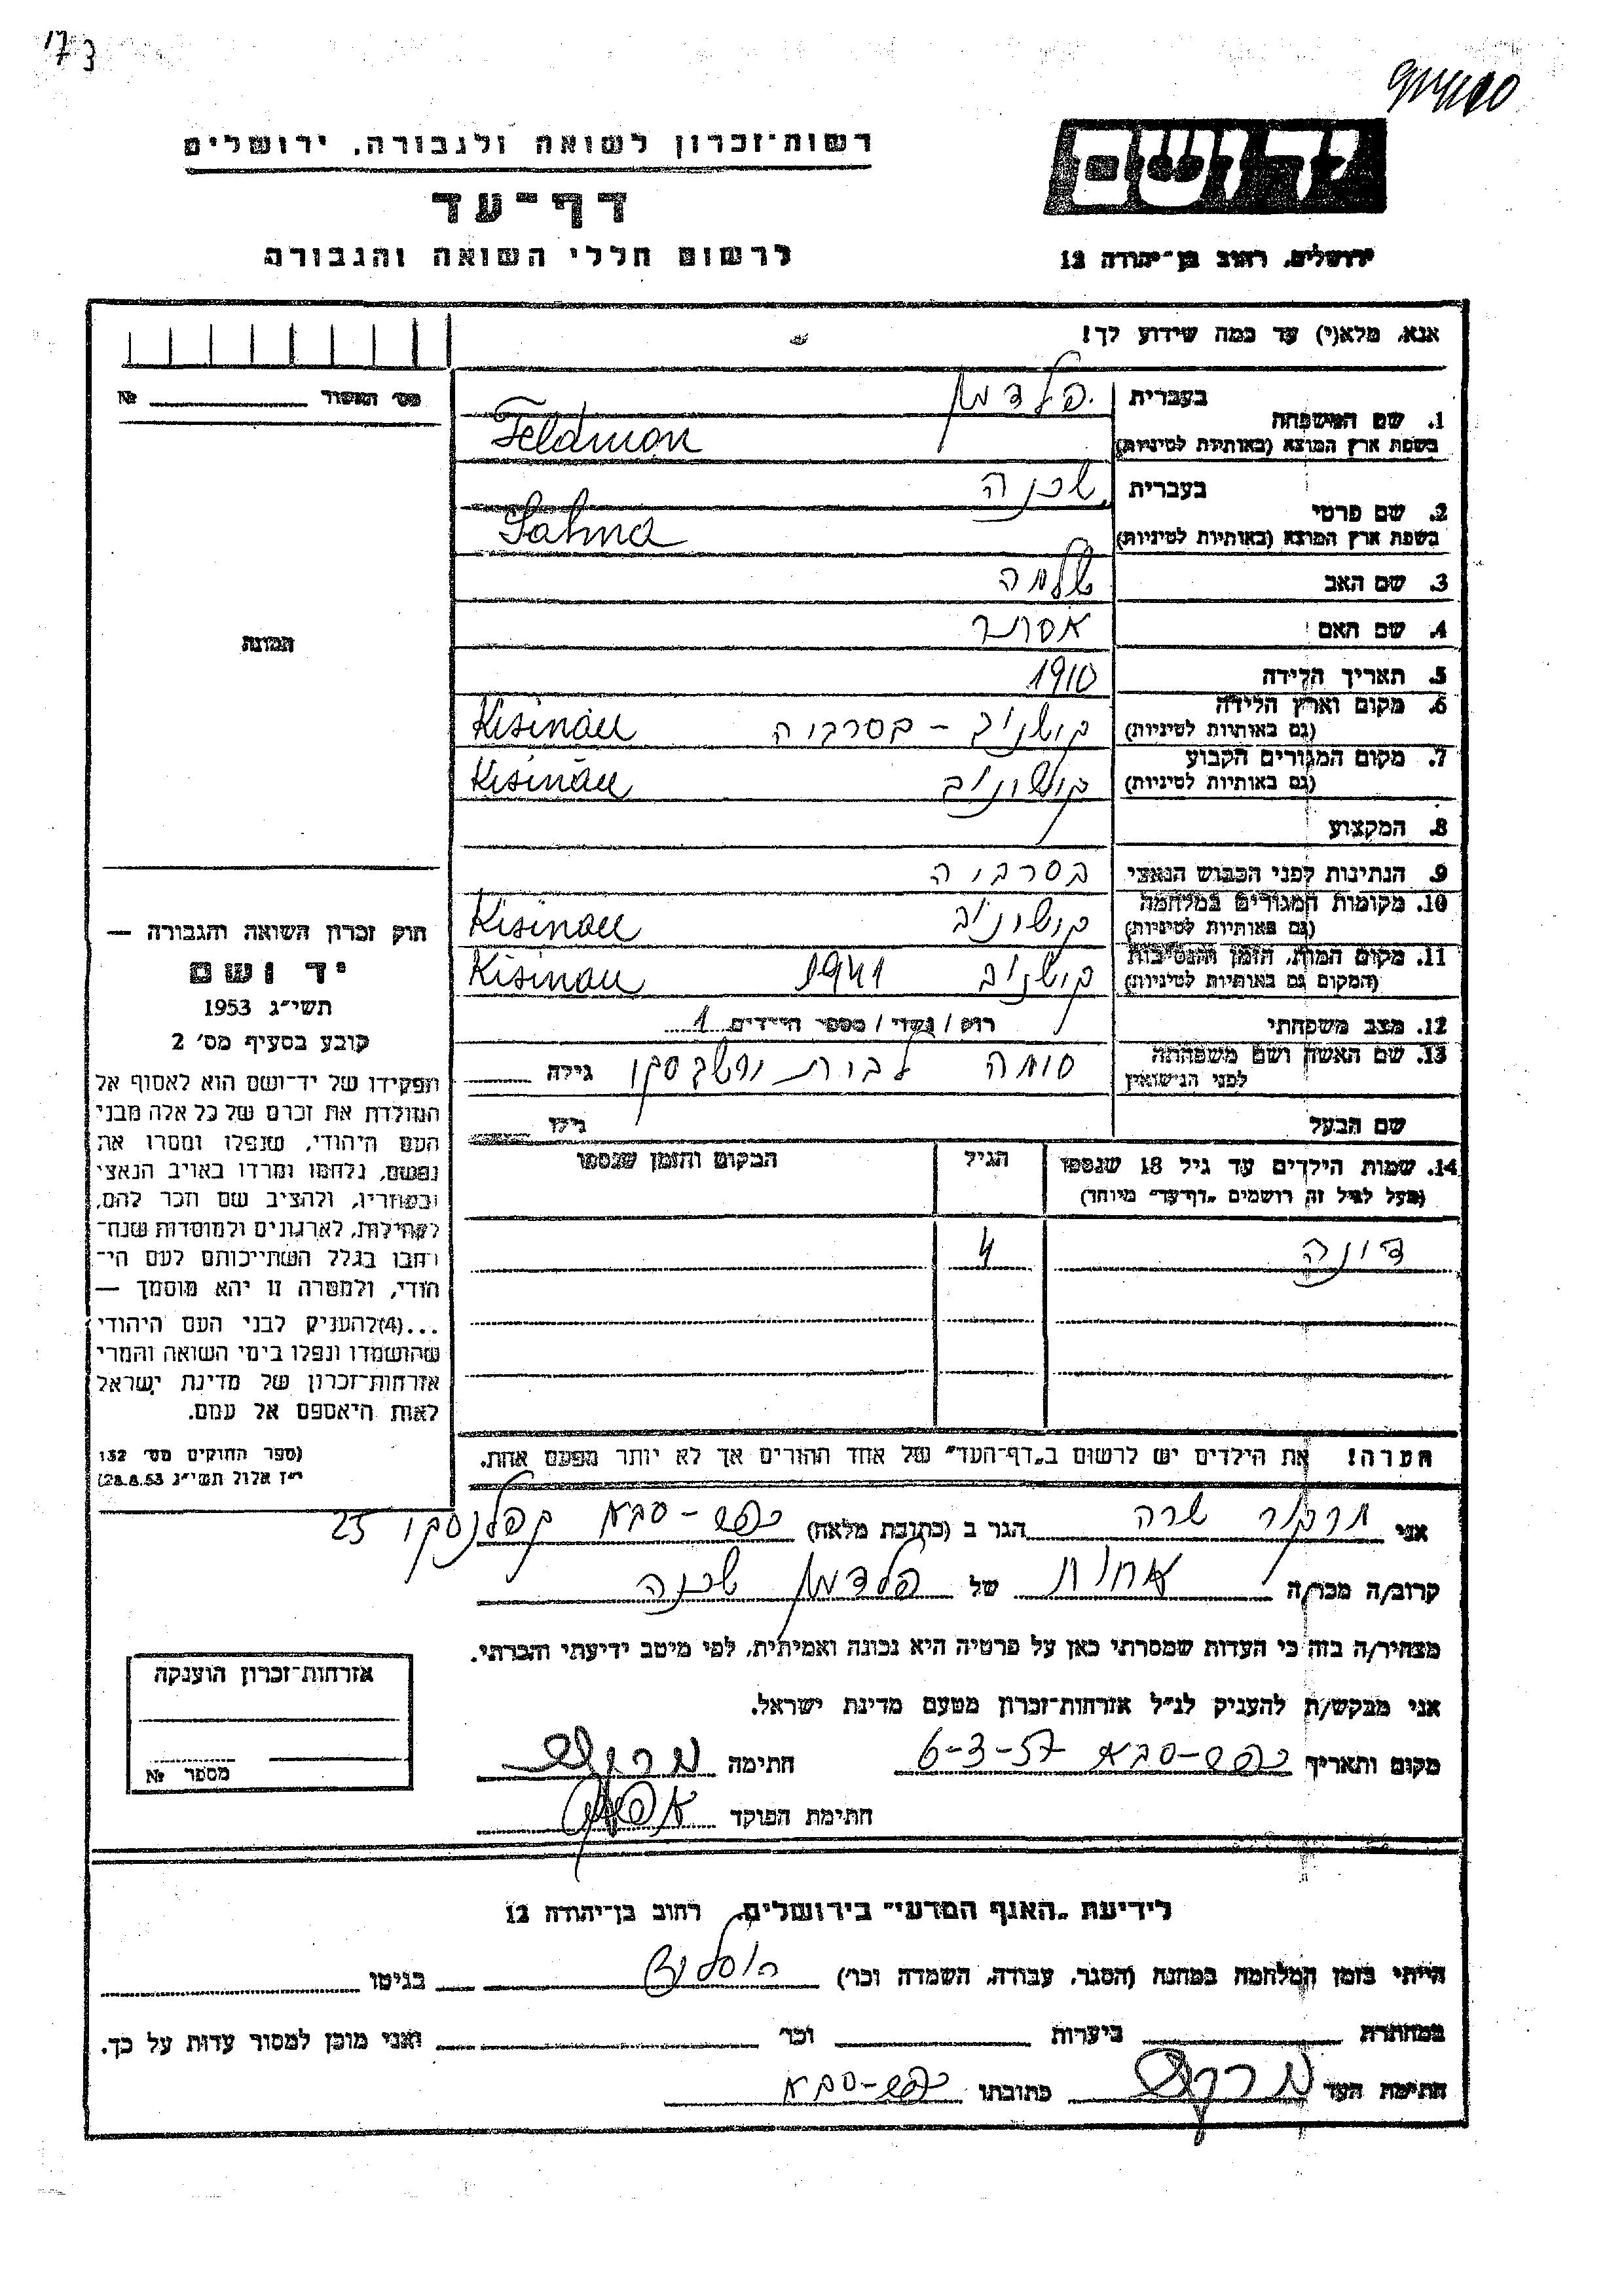 173
רשות־זכרון לשואה ולגבורה, ירושלים
דף־עד
לרשום חללי השואה והגבורה
יד ושם
ירושלים, רחוב בן־יהודה 12
אנא, מלא(י) עד כמה שידוע לך!
מס' האשור № 
1. שם המשפחה בעברית פלדמן
בשפת ארץ המוצא (באותיות לטיניות) Feldman
2. שם פרטי בעברית שכנה
בשפת ארץ המוצא (באותיות לטיניות) Sahna
3. שם האב שלמה
4. שם האם אסתר
5. תאריך הלידה 1910
6. מקום וארץ הלידה קישינוב - בסרביה Kisinău
(גם באותיות לטיניות)
7. מקום המגורים הקבוע קישינוב Kisinău
(גם באותיות לטיניות)
8. המקצוע
9. הנתינות לפני הכבוש הנאצי בסרביה
10. מקומות המגורים במלחמה קישינוב Kisinău
(גם באותיות לטיניות)
11. מקום המות, הזמן והנסיבות קישינוב 1941 Kisinau
(המקום גם באותיות לטיניות)
12. מצב משפחתי רווק / נשוי / מספר הילדים 1
13. שם האשה ושם משפחתה לפני הנישואין לבית גילה
שם הבעל גילו
14. שמות הילדים עד גיל 18 שנספו הגיל המקום והזמן שנספו
(מעל לגיל זה רושמים „דף־עד" מיוחד)
דונה 4
הערה! את הילדים יש לרשום ב„דף־העד" של אחד ההורים אך לא יותר מפעם אחת.
התמונה
חוק זכרון השואה והגבורה —
יד ושם
תשי"ג 1953
קובע בסעיף מס' 2
תפקידו של יד־ושם הוא לאסוף אל
המולדת את זכרם של כל אלה מבני
העם היהודי, שנפלו ומסרו את
נפשם, נלחמו ומרדו באויב הנאצי
ובעוזריו, ולהציב שם וזכר להם,
לקהילות, לארגונים ולמוסדות שנח־
רבו בגלל השתייכותם לעם הי־
הודי, ולמטרה זו יהא מוסמך —
...(4)להעניק לבני העם היהודי
שהושמדו ונפלו בימי השואה והמרי
אזרחות־זכרון של מדינת ישראל
לאות היאספם אל עמם.
(ספר החוקים מס' 132
י"ז אלול תשי"ג 28.8.53)
אני שרה הגר ב (כתובת מלאה) כפר-סבא קפלנסקי 25
קרוב/ה מכר/ה אחות של פלדמן שכנה
מצהיר/ה בזה כי העדות שמסרתי כאן על פרטיה היא נכונה ואמיתית, לפי מיטב ידיעתי והכרתי.
אני מבקש/ת להעניק לנ"ל אזרחות־זכרון מטעם מדינת ישראל.
מקום ותאריך כפר-סבא 6-3-57 חתימה
חתימת הפוקד
אזרחות־זכרון הוענקה
מספר №
לידיעת „האגף המדעי" בירושלים, רחוב בן־יהודה 12
הייתי בזמן המלחמה במחנה (הסגר, עבודה, השמדה וכו') בגיטו
במחתרת ביערות וכו' ואני מוכן למסור עדות על כך.
חתימת העד כתובתו כפר-סבא